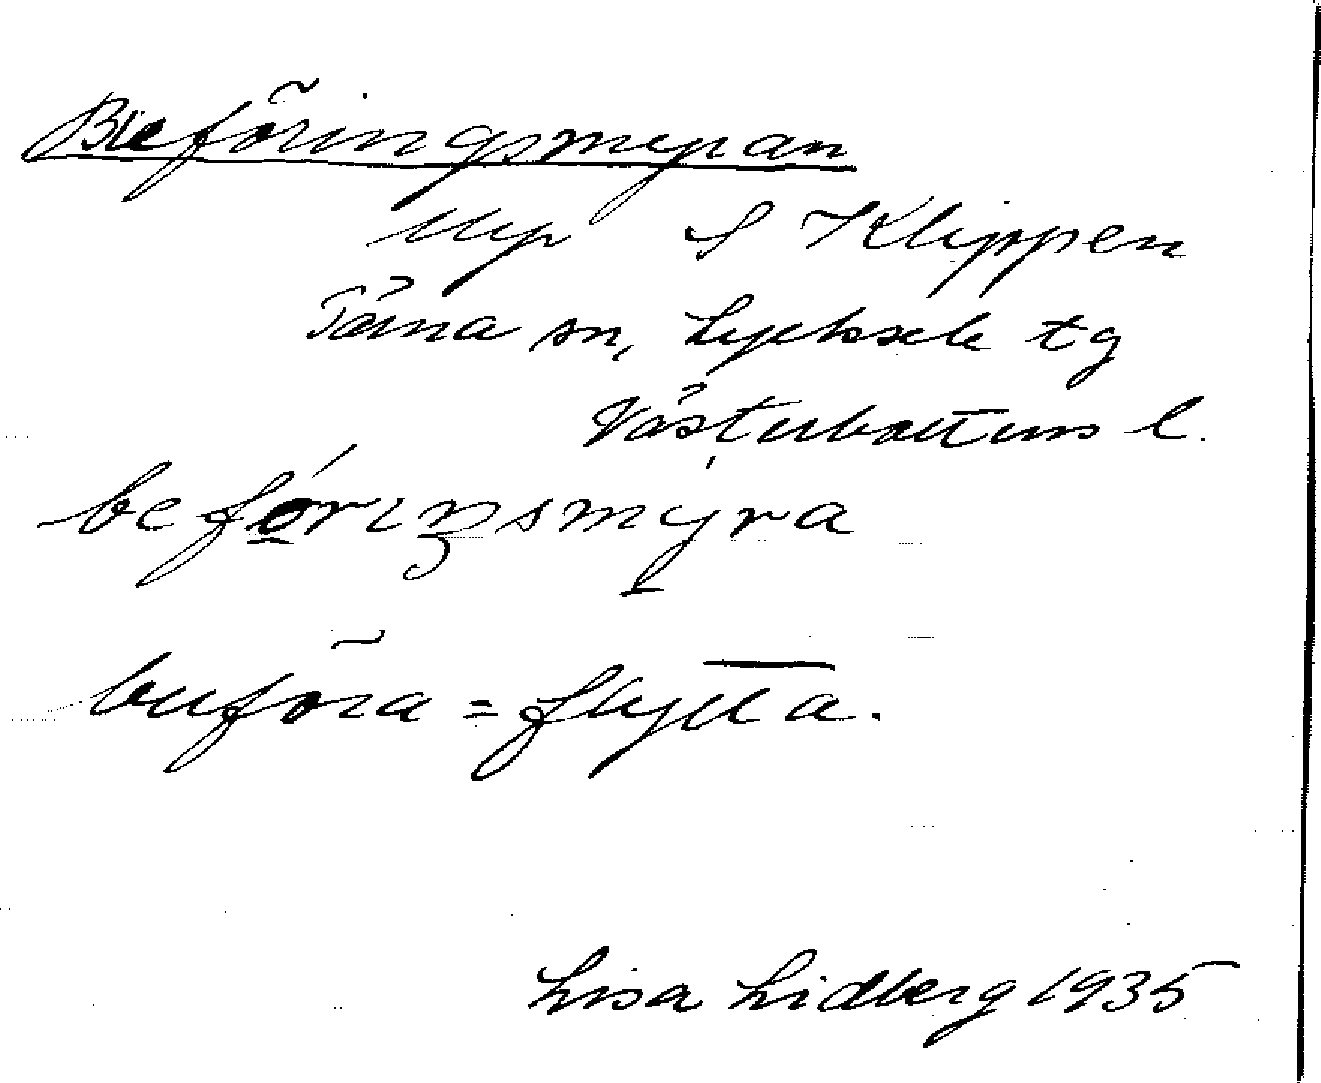 Beföringsmyran
Myr S Klippen
Tärna sn, Lycksele tg
Västerbottens l.
beförıŋsmyra
buföra = flytta.
Lisa Lidberg 1935